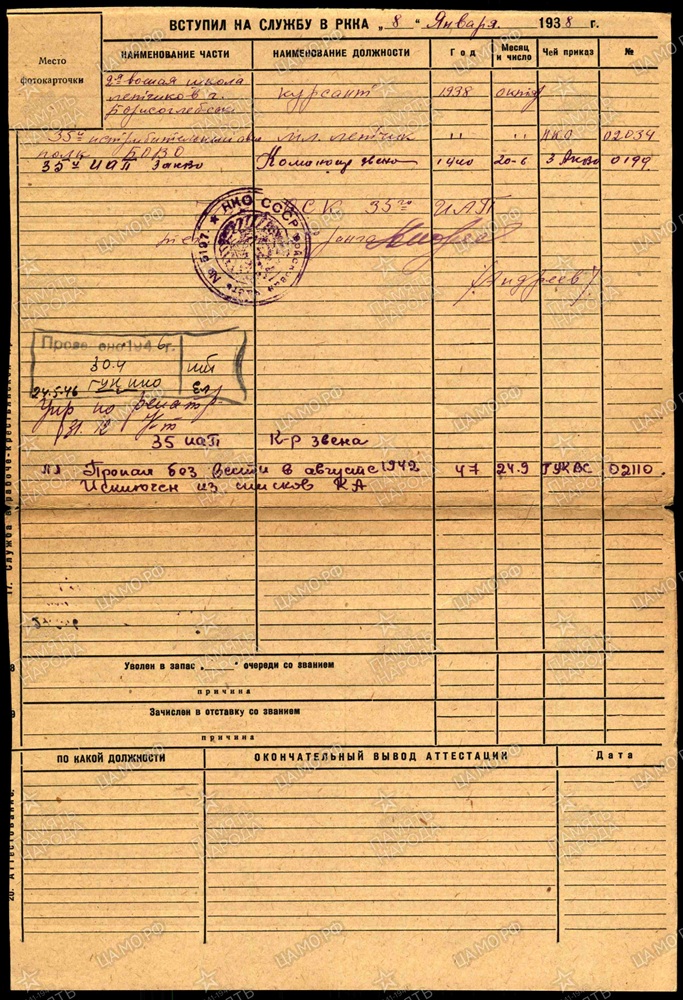 ВСТУПИЛ НА СЛУЖБУ В РККА „ 8 “ Января 1938 г.
Место фотокарточки
НАИМЕНОВАНИЕ ЧАСТИ НАИМЕНОВАНИЕ ДОЛЖНОСТИ Год Месяц и число Чей приказ №
2ая воен­ая школа
летчиков г. курсант 1938 октяб
Борисоглебск
35й истребительный ави мл. летчик " " НКО 02034
полк БОВО
35й ИАП ЗакВО Командир звена 1940 20-6 ЗакВО 0199
НКО СССР
№ 5197
35го ИАП
/Андреев/
Прове ено 1946 г.
30.4
ГУК НКО
24.5.46
Упр по репатр
31.12
35 иап К-р звена
Пропал без вести в августе 1942 47 24.9 ГУКВС 02110.
Исключен из списков КА
17. Служба в рабоче-крестьянской
8 Уволен в запас „ “ очереди со званием
причина
9 Зачислен в отставку со званием
причина
20. Аттестование
ПО КАКОЙ ДОЛЖНОСТИ ОКОНЧАТЕЛЬНЫЙ ВЫВОД АТТЕСТАЦИИ Дата
ЦАМО.РФ
ПАМЯТЬ НАРОДА